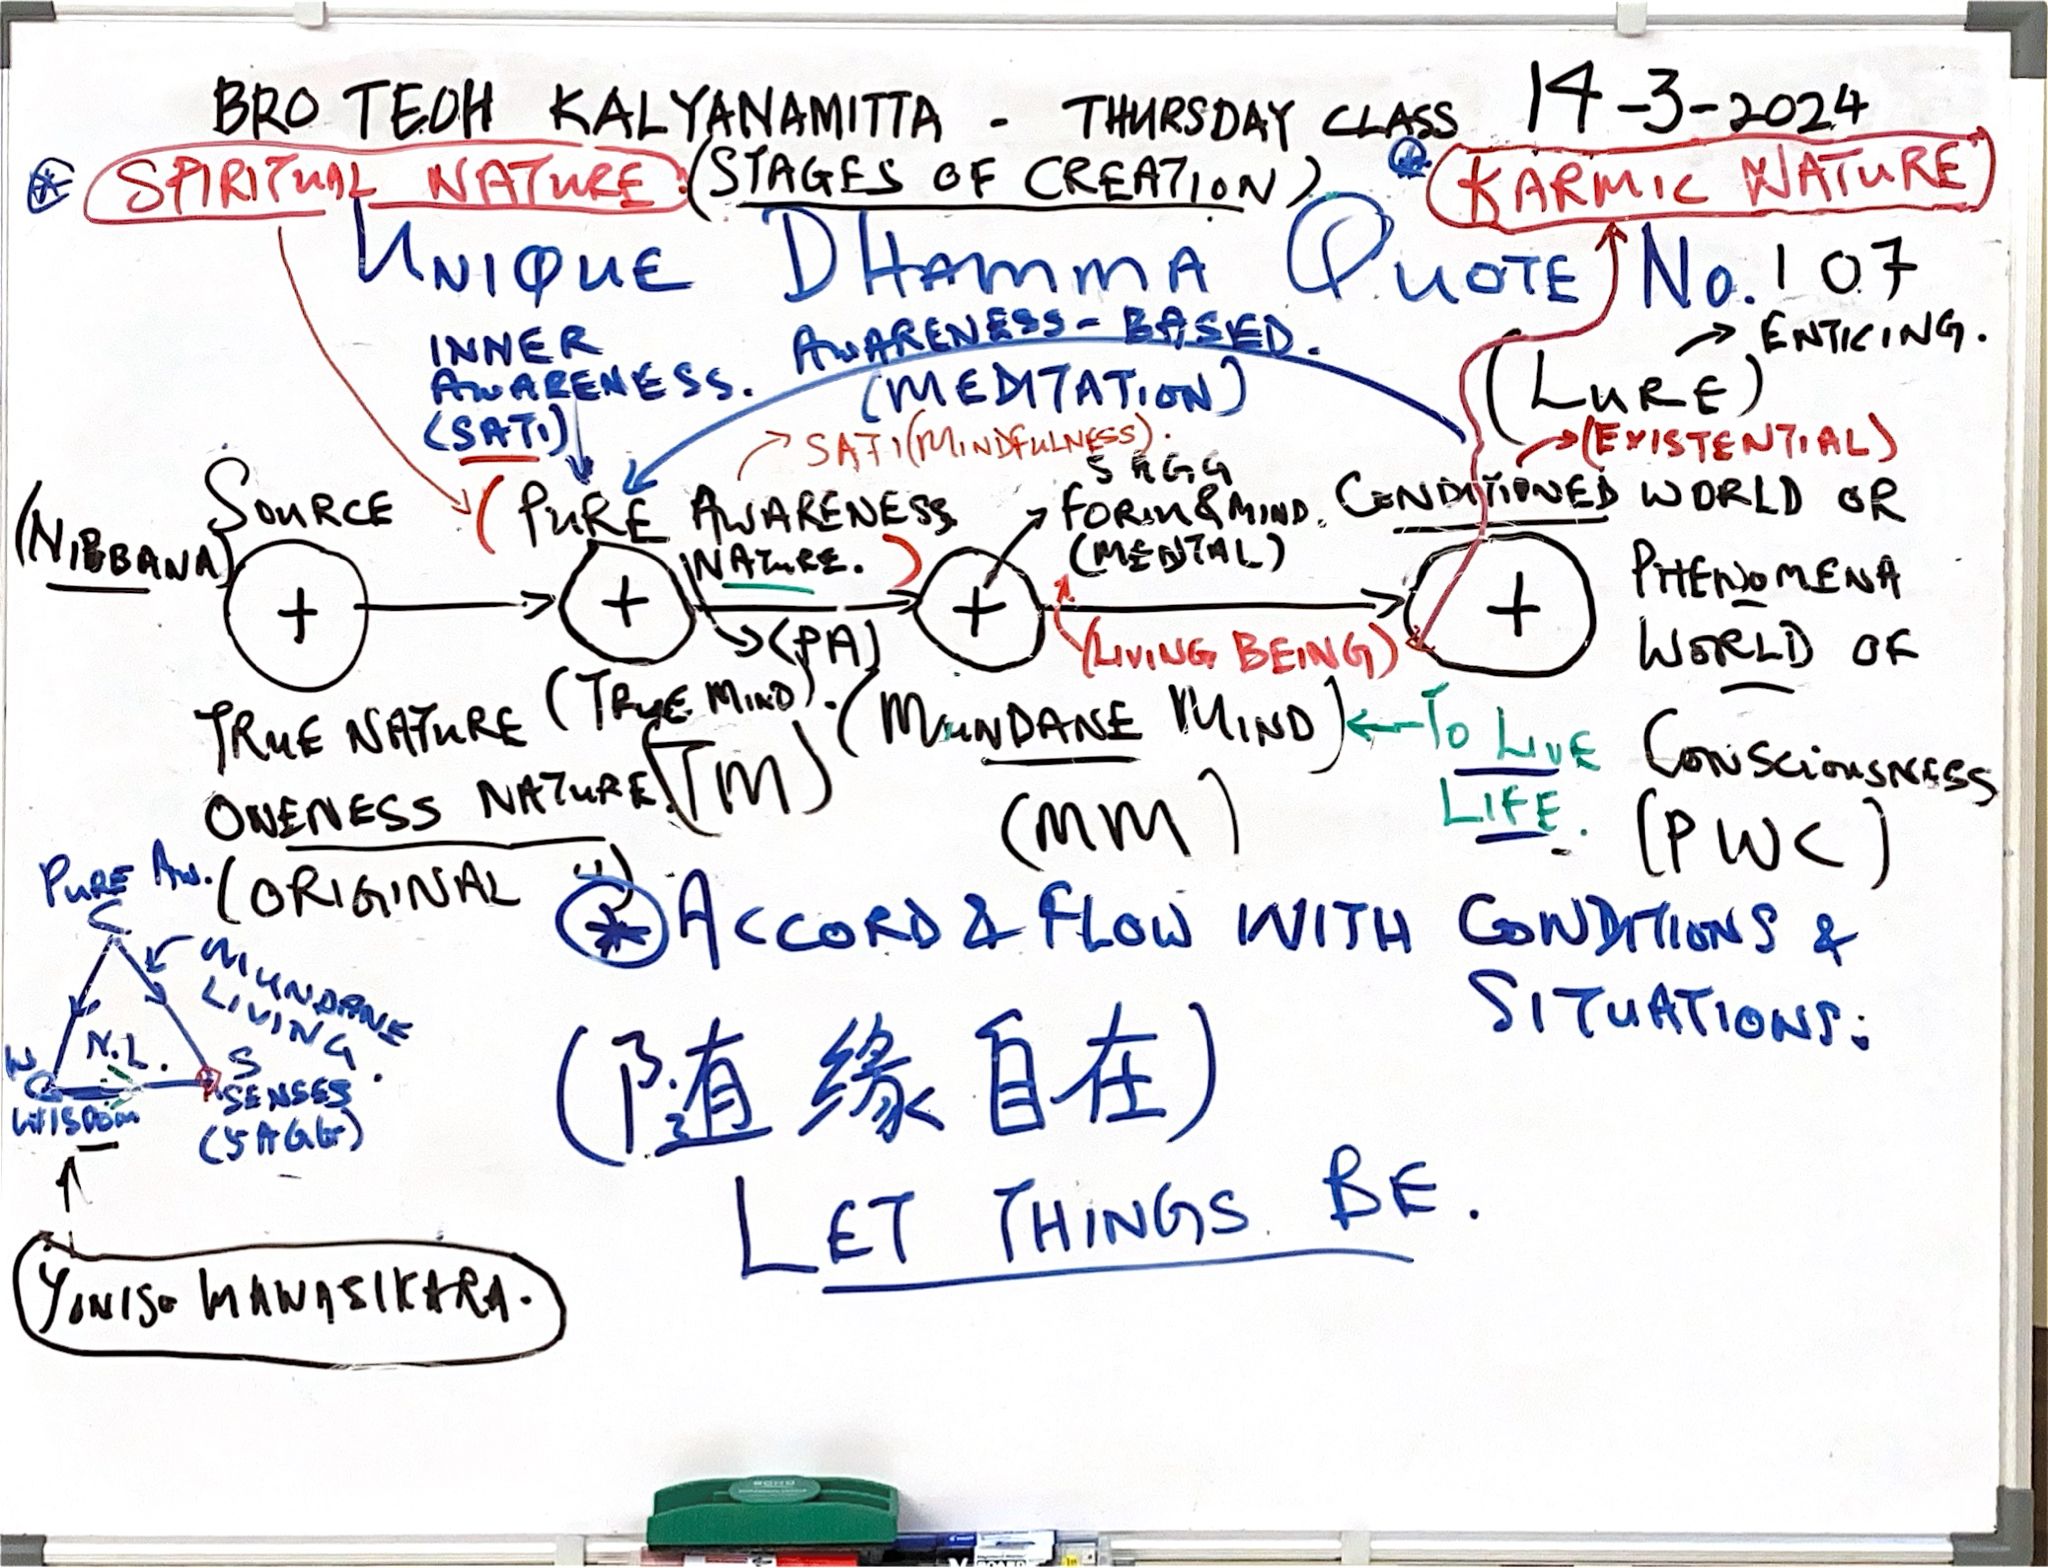 BRO TEOH KALYANAMITTA - THURSDAY CLASS 14-3-2024
* SPIRITUAL NATURE: (STAGES OF CREATION) * KARMIC NATURE
UNIQUE DHAMMA QUOTE No. 107
INNER AWARENESS. (SATI)
AWARENESS-BASED.
(MEDITATION)
(LURE) → ENTICING.
→ (EXISTENTIAL)
→ SATI (MINDFULNESS).
(NIBBANA)
SOURCE
+
(PURE AWARENESS
NATURE.)
+
→ (PA)
5 AGG
FORM & MIND.
(MENTAL)
+
(LIVING BEING)
CONDITIONED WORLD OR
PHENOMENA
WORLD OF
CONSCIOUSNESS
(PWC)
+
TRUE NATURE
ONENESS NATURE.
(ORIGINAL ")
(TRUE MIND).
(TM)
(MUNDANE MIND)
(MM)
← TO LIVE
LIFE.
PURE AW.
C
MUNDANE
LIVING
N.L.
W
WISDOM
S
SENSES
(5 AGG)
YONISO MANASIKARA.
* ACCORD & FLOW WITH CONDITIONS &
SITUATIONS:
(随缘自在)
LET THINGS BE.